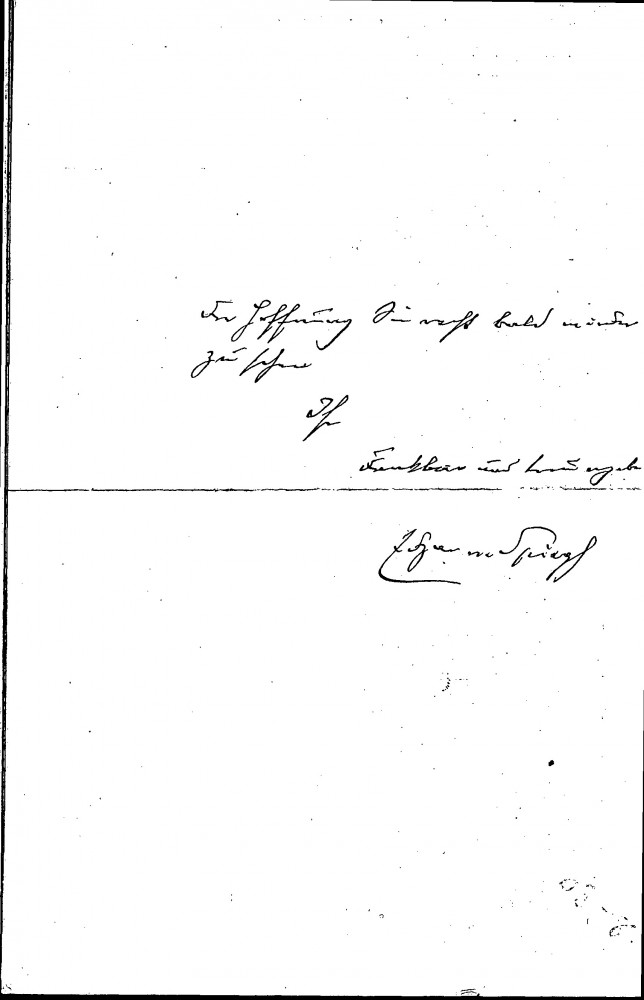 der Hoffnung Sie recht bald wieder
zu sehen
Ihr
dankbar und treu ergebe
Edgar von Spiegl